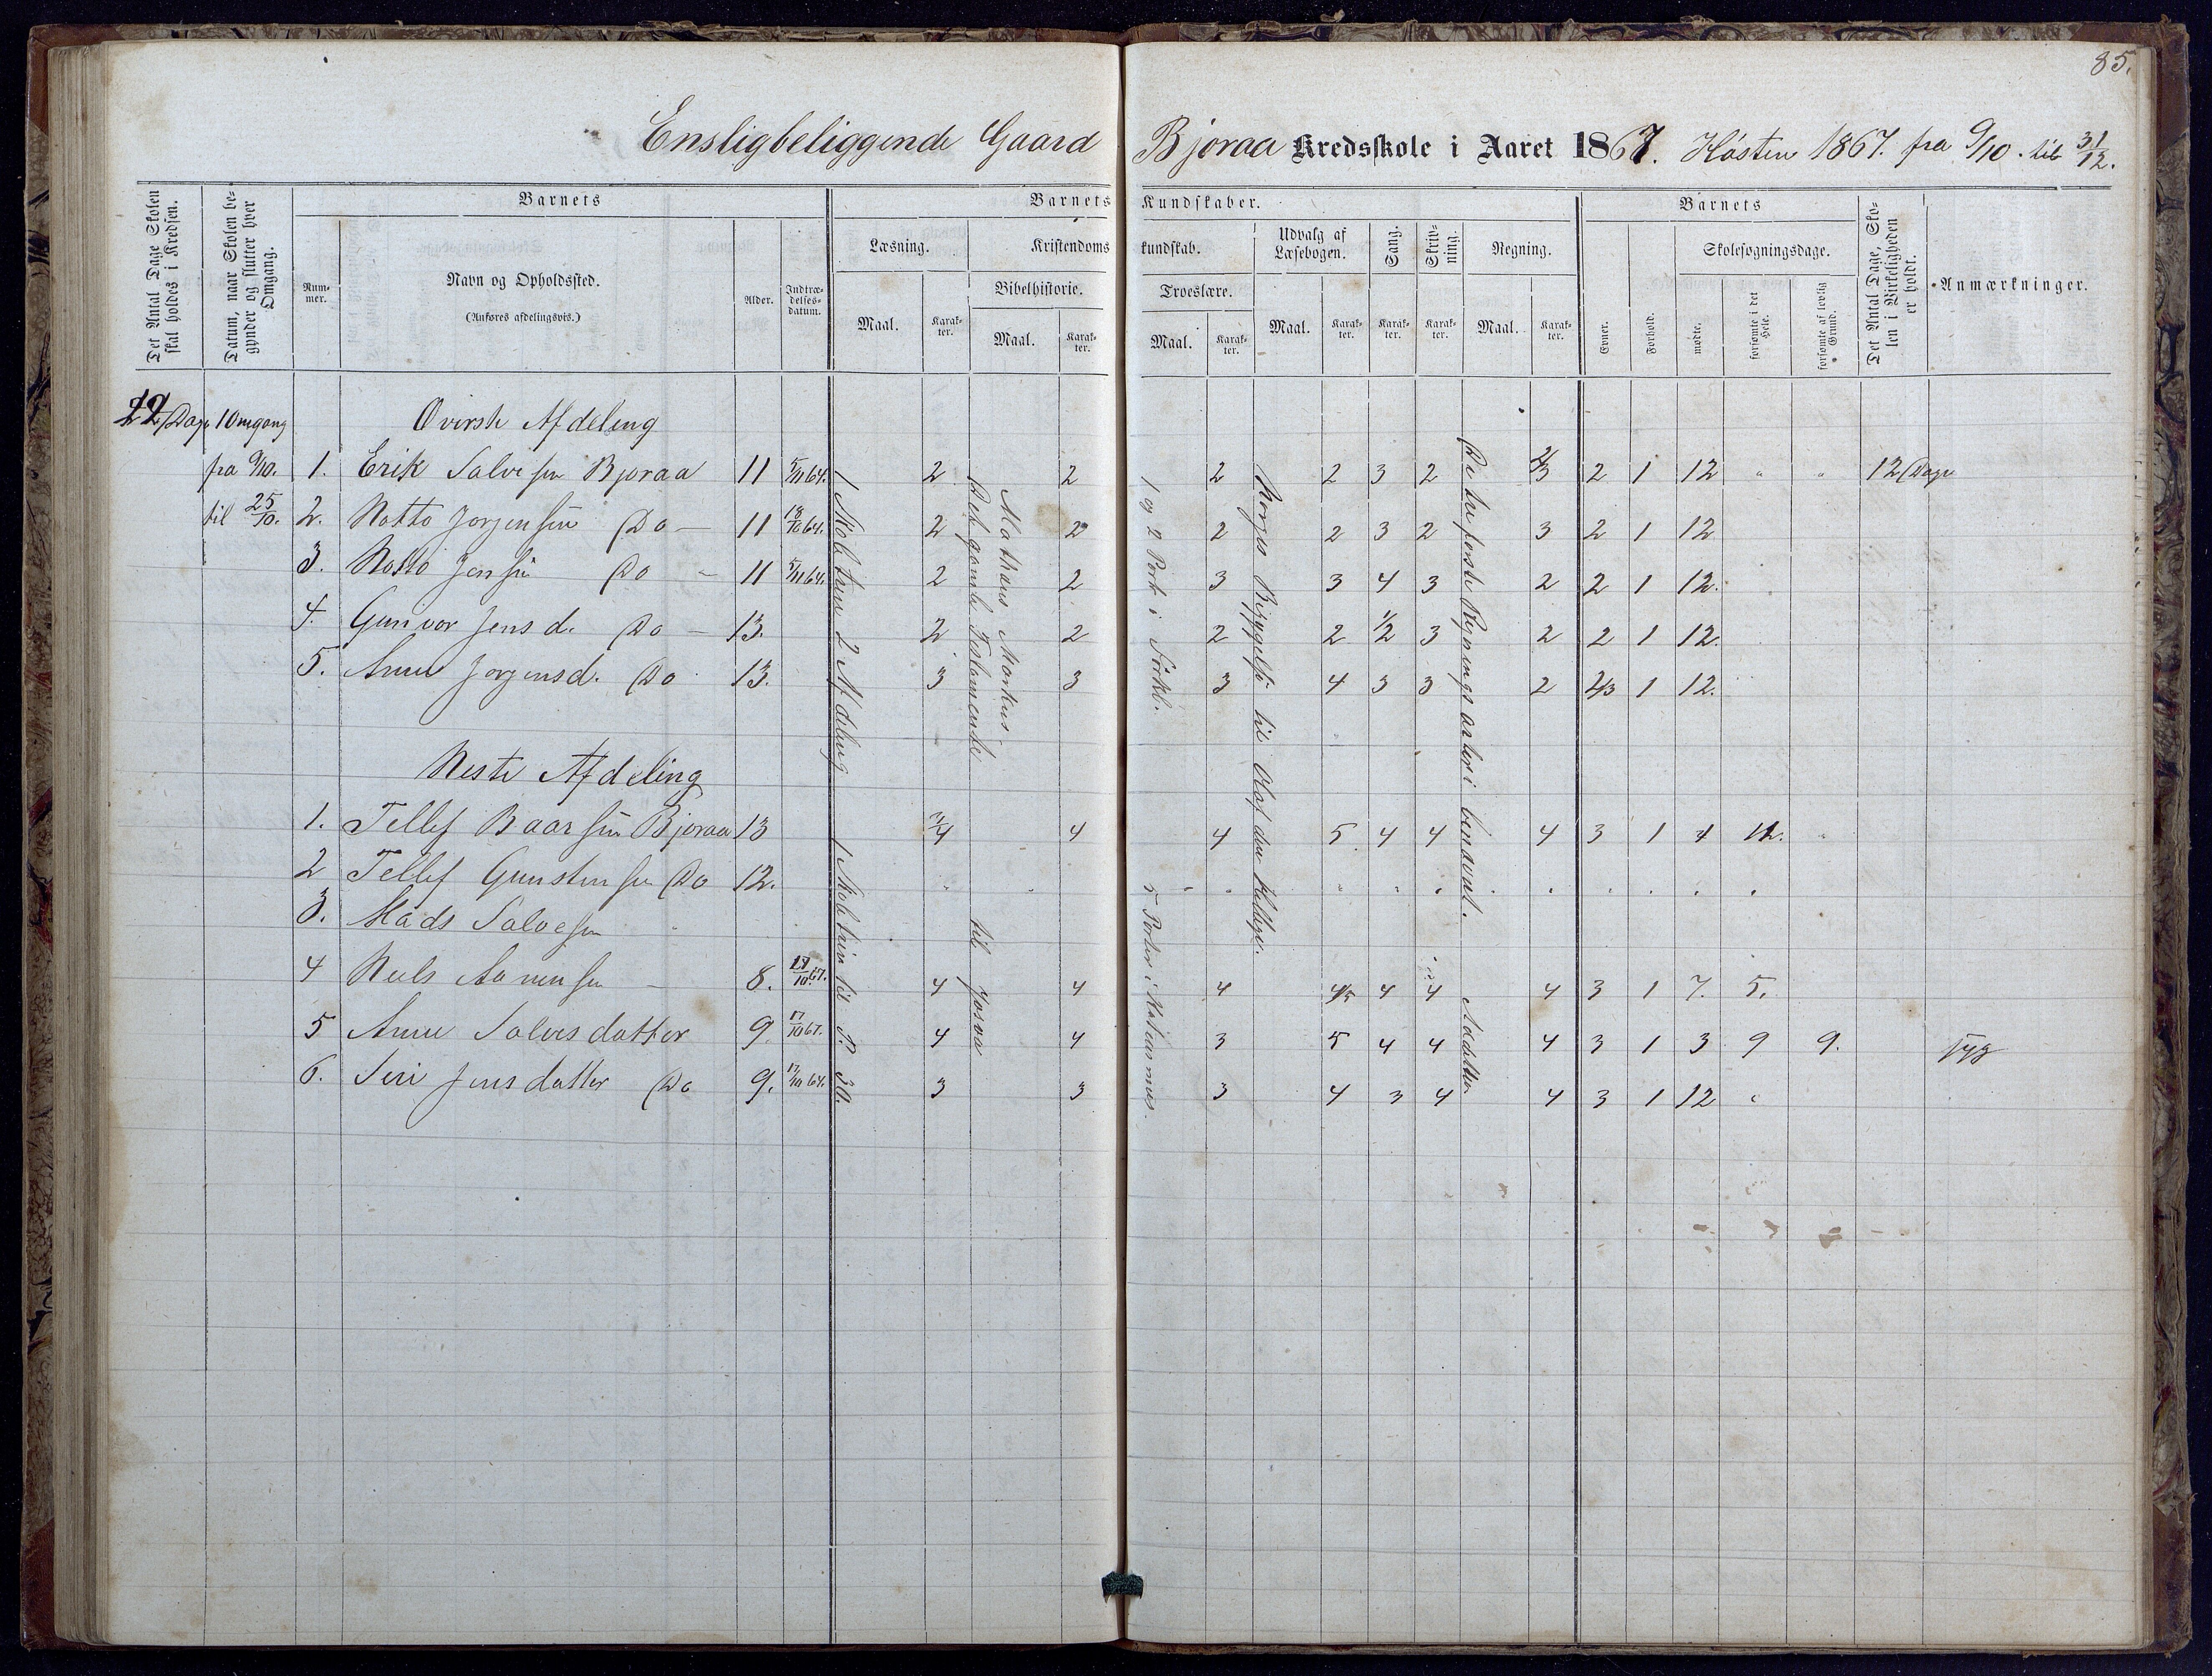 85.
Ensligbeliggende Gaard Bjoraa Kredsskole i Aaret 1867. Hösten 1867. fra 9/10. til 31/12.
Det Antal Dage Skolen skal holdes i Kredsen.
Datum, naar Skolen begynder og slutter hver Omgang.
Barnets
Nummer.
Navn og Opholdssted.
(Anføres afdelingsvis.)
Alder.
Indtrædelsesdatum.
Barnets Kundskaber.
Læsning.
Maal.
Karakter.
Kristendomskundskab.
Bibelhistorie.
Maal.
Karakter.
Troeslære.
Maal.
Karakter.
Udvalg af Læsebogen.
Maal.
Karakter.
Sang.
Karakter.
Skrivning.
Karakter.
Regning.
Maal.
Karakter.
Barnets
Evner.
Forhold.
Skolesøgningsdage.
mødte.
forsømte i det Hele.
forsømte af lovlig Grund.
Det Antal Dage, Skolen i Virkeligheden er holdt.
Anmærkninger.
12 Dage 1 Omgang Øverste Afdeling
fra 9/10. 1. Erik Salvesen Bjoraa 11 5/11 64. 2 2 2 2 3 2 2/3 2 1 12 " " 12 Dage
til 25/10. 2. Notto Jorgensen Do — 11 18/10 64. 2 2 2 2 3 2 3 2 1 12
3. Notto Jensen Do - 11 5/11 64. 2 2 3 3 4 3 2 2 1 12.
4. Gunvor Jensd. Do — 13. 2 2 2 2 1/2 3 2 2 1 12.
5. Anne Jorgensd. Do 13. 3 3 3 4 3 3 2 2/3 1 12.
1 Mol tren 2 Afdeling
Det gamle Testamente
Mathæus Markus
1 og 2 Part i Forkl.
Norges Bebyggelse til Olaf den Hellige.
De fire første Regningsarter i benævnt.
Neste Afdeling
1. Tellef Baarsen Bjoraa 13 3/4 4 4 5. 4 4 4 3 1 4 12. "
2 Tellef Gunstensen Do 12.
3. Mads Salvesen
4 Neels Aanensen — 8. 17/10 67. 4 4 4 4/5 4 4 4 3 1 7. 5.
5 Anne Salvesdatter 9. 17/10 67. 4 4 3 5 4 4 4 3 1 3 9 9. syg
6. Siri Jensdatter Do 9. 17/10 64. 3 3 3 4 3 4 4 3 1 12 "
til P. 30.
til Josva
5 Parter i
Addition